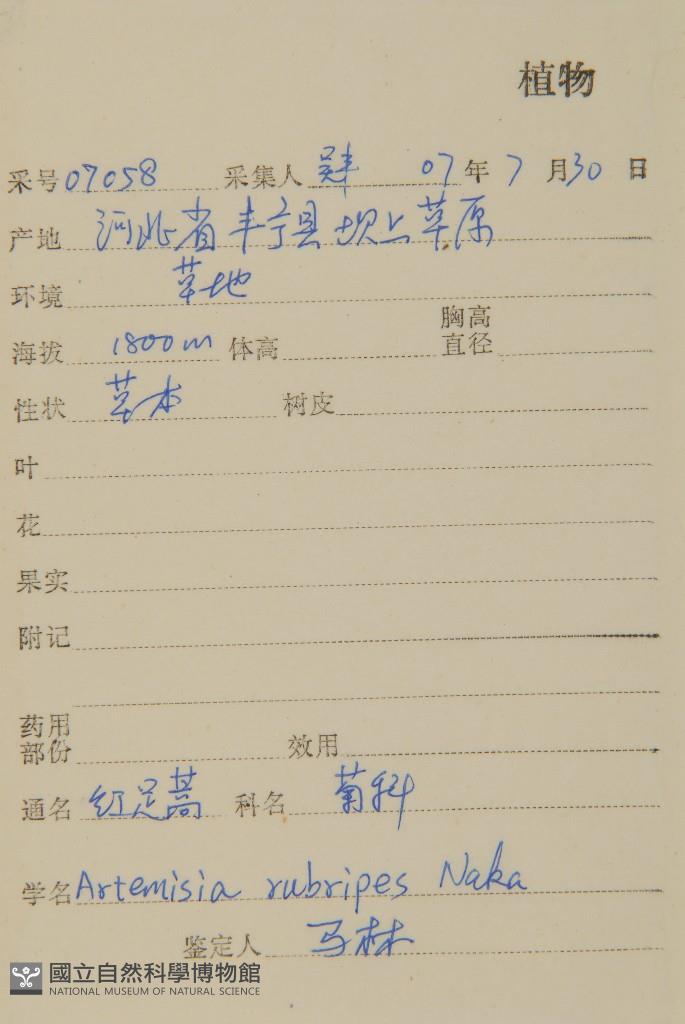 植物
采号 07058 采集人 吴丰 07年 7 月 30 日
产地 河北省丰宁县坝上草原
环境 草地
海拔 1800m 体高 胸高直径
性状 草本 树皮
叶
花
果实
附记
药用部份 效用
通名 红足蒿 科名 菊科
学名 Artemisia rubripes Naka
鉴定人 马林
國立自然科學博物館
NATIONAL MUSEUM OF NATURAL SCIENCE